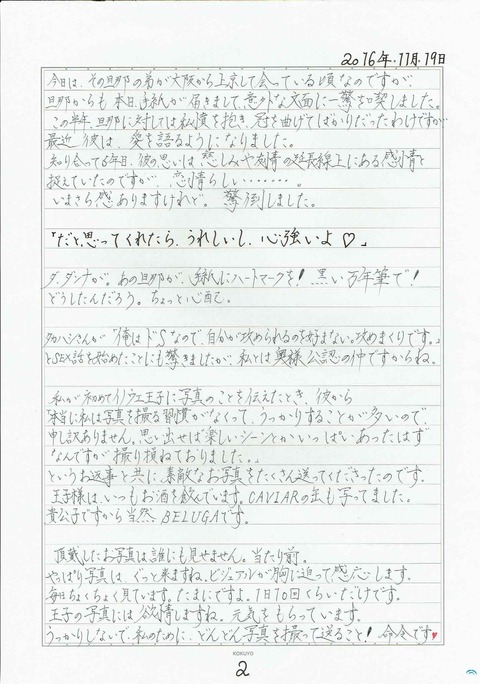 2016年.11月.19日
今日は、その旦那の弟が大阪から上京して会っている頃なのですが、
旦那からも本日、手紙が届きまして、意外な文面に一驚を喫しました。
この半年、旦那に対しては私憤を抱き、冠を曲げてばかりだったわけですが
最近、彼は、愛を語るようになりました。
知り合って6年目、彼の思いは、慈しみや友情の延長線上にある感情と
捉えていたのですが、恋情らしい‥‥‥‥。
いまさら感ありますけれど。驚倒しました。
「だと、思ってくれたら、うれしいし、心強いよ♡」
ダ、ダンナが。あの旦那が、手紙にハートマークを!黒い万年筆で!
どうしたんだろう。ちょっと心配。
タカハシさんが「俺はドSなので、自分が攻められるのを好まない。攻めまくりです。」
とSEX話を始めたことにも驚きましたが、私とは奥様公認の仲ですからね。
私が初めてイノウエ王子に写真のことを伝えたとき、彼から
「本当に私は写真を撮る習慣がなくって、うっかりすることが多いので、
申し訳ありません。思い出せば楽しいシーンとかいっぱいあったはず
なんですが撮り損ねておりました。」
というお返事と共に、素敵なお写真をたくさん送ってくださったのです。
王子様は、いつもお酒を飲んでいます。CAVIARの缶も写ってました。
貴公子ですから当然、BELUGAです。
頂戴したお写真は誰にも見せません。当たり前。
やっぱり写真は、ぐっと来ますね。ビジュアルが胸に迫って感応します。
毎日ちょくちょく見ています。たまにですよ。1日70回くらいだけです。
王子の写真には欲情しますね。元気をもらっています。
うっかりしないで、私のために、どんどん写真を撮って送ること!命令です♥
KOKUYO
2